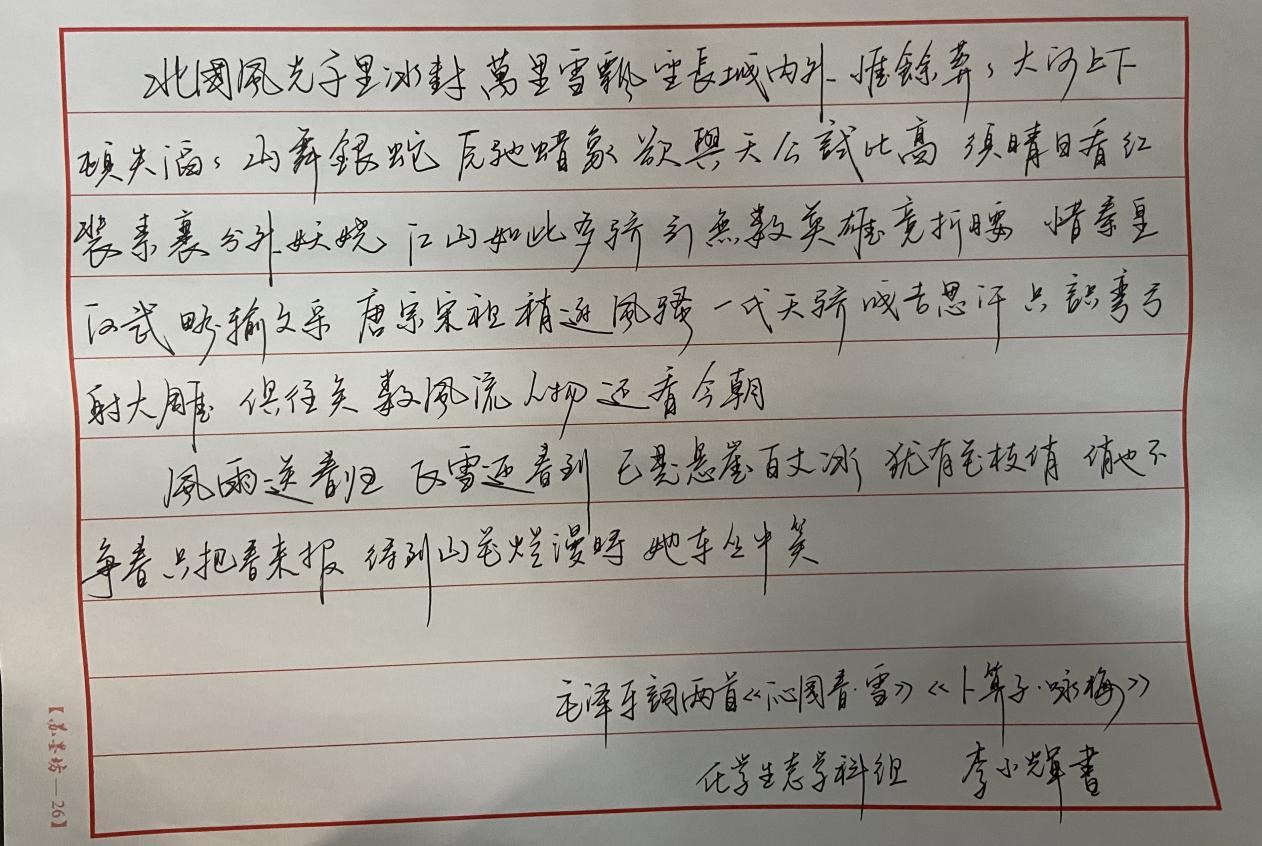 北國風光千里冰封 萬里雪飄望長城内外 惟餘莽々大河上下
頓失滔々山舞銀蛇 原驰蜡象 欲與天公試比高 須晴日看红
装素裹分外妖娆 江山如此多骄引無数英雄竞折腰 惜秦皇
汉武略输文采 唐宗宋祖稍逊風骚 一代天骄成吉思汗只識弯弓
射大雕 俱往矣数風流人物还看今朝
風雨送春归 飞雪迎春到 已是悬崖百丈冰 犹有花枝俏 俏也不
争春只把春来报 待到山花烂漫時 她在丛中笑
毛泽东詞两首《沁园春·雪》《卜算子·咏梅》
化学生态学科组 李小輝書
【苏墨坊—26】